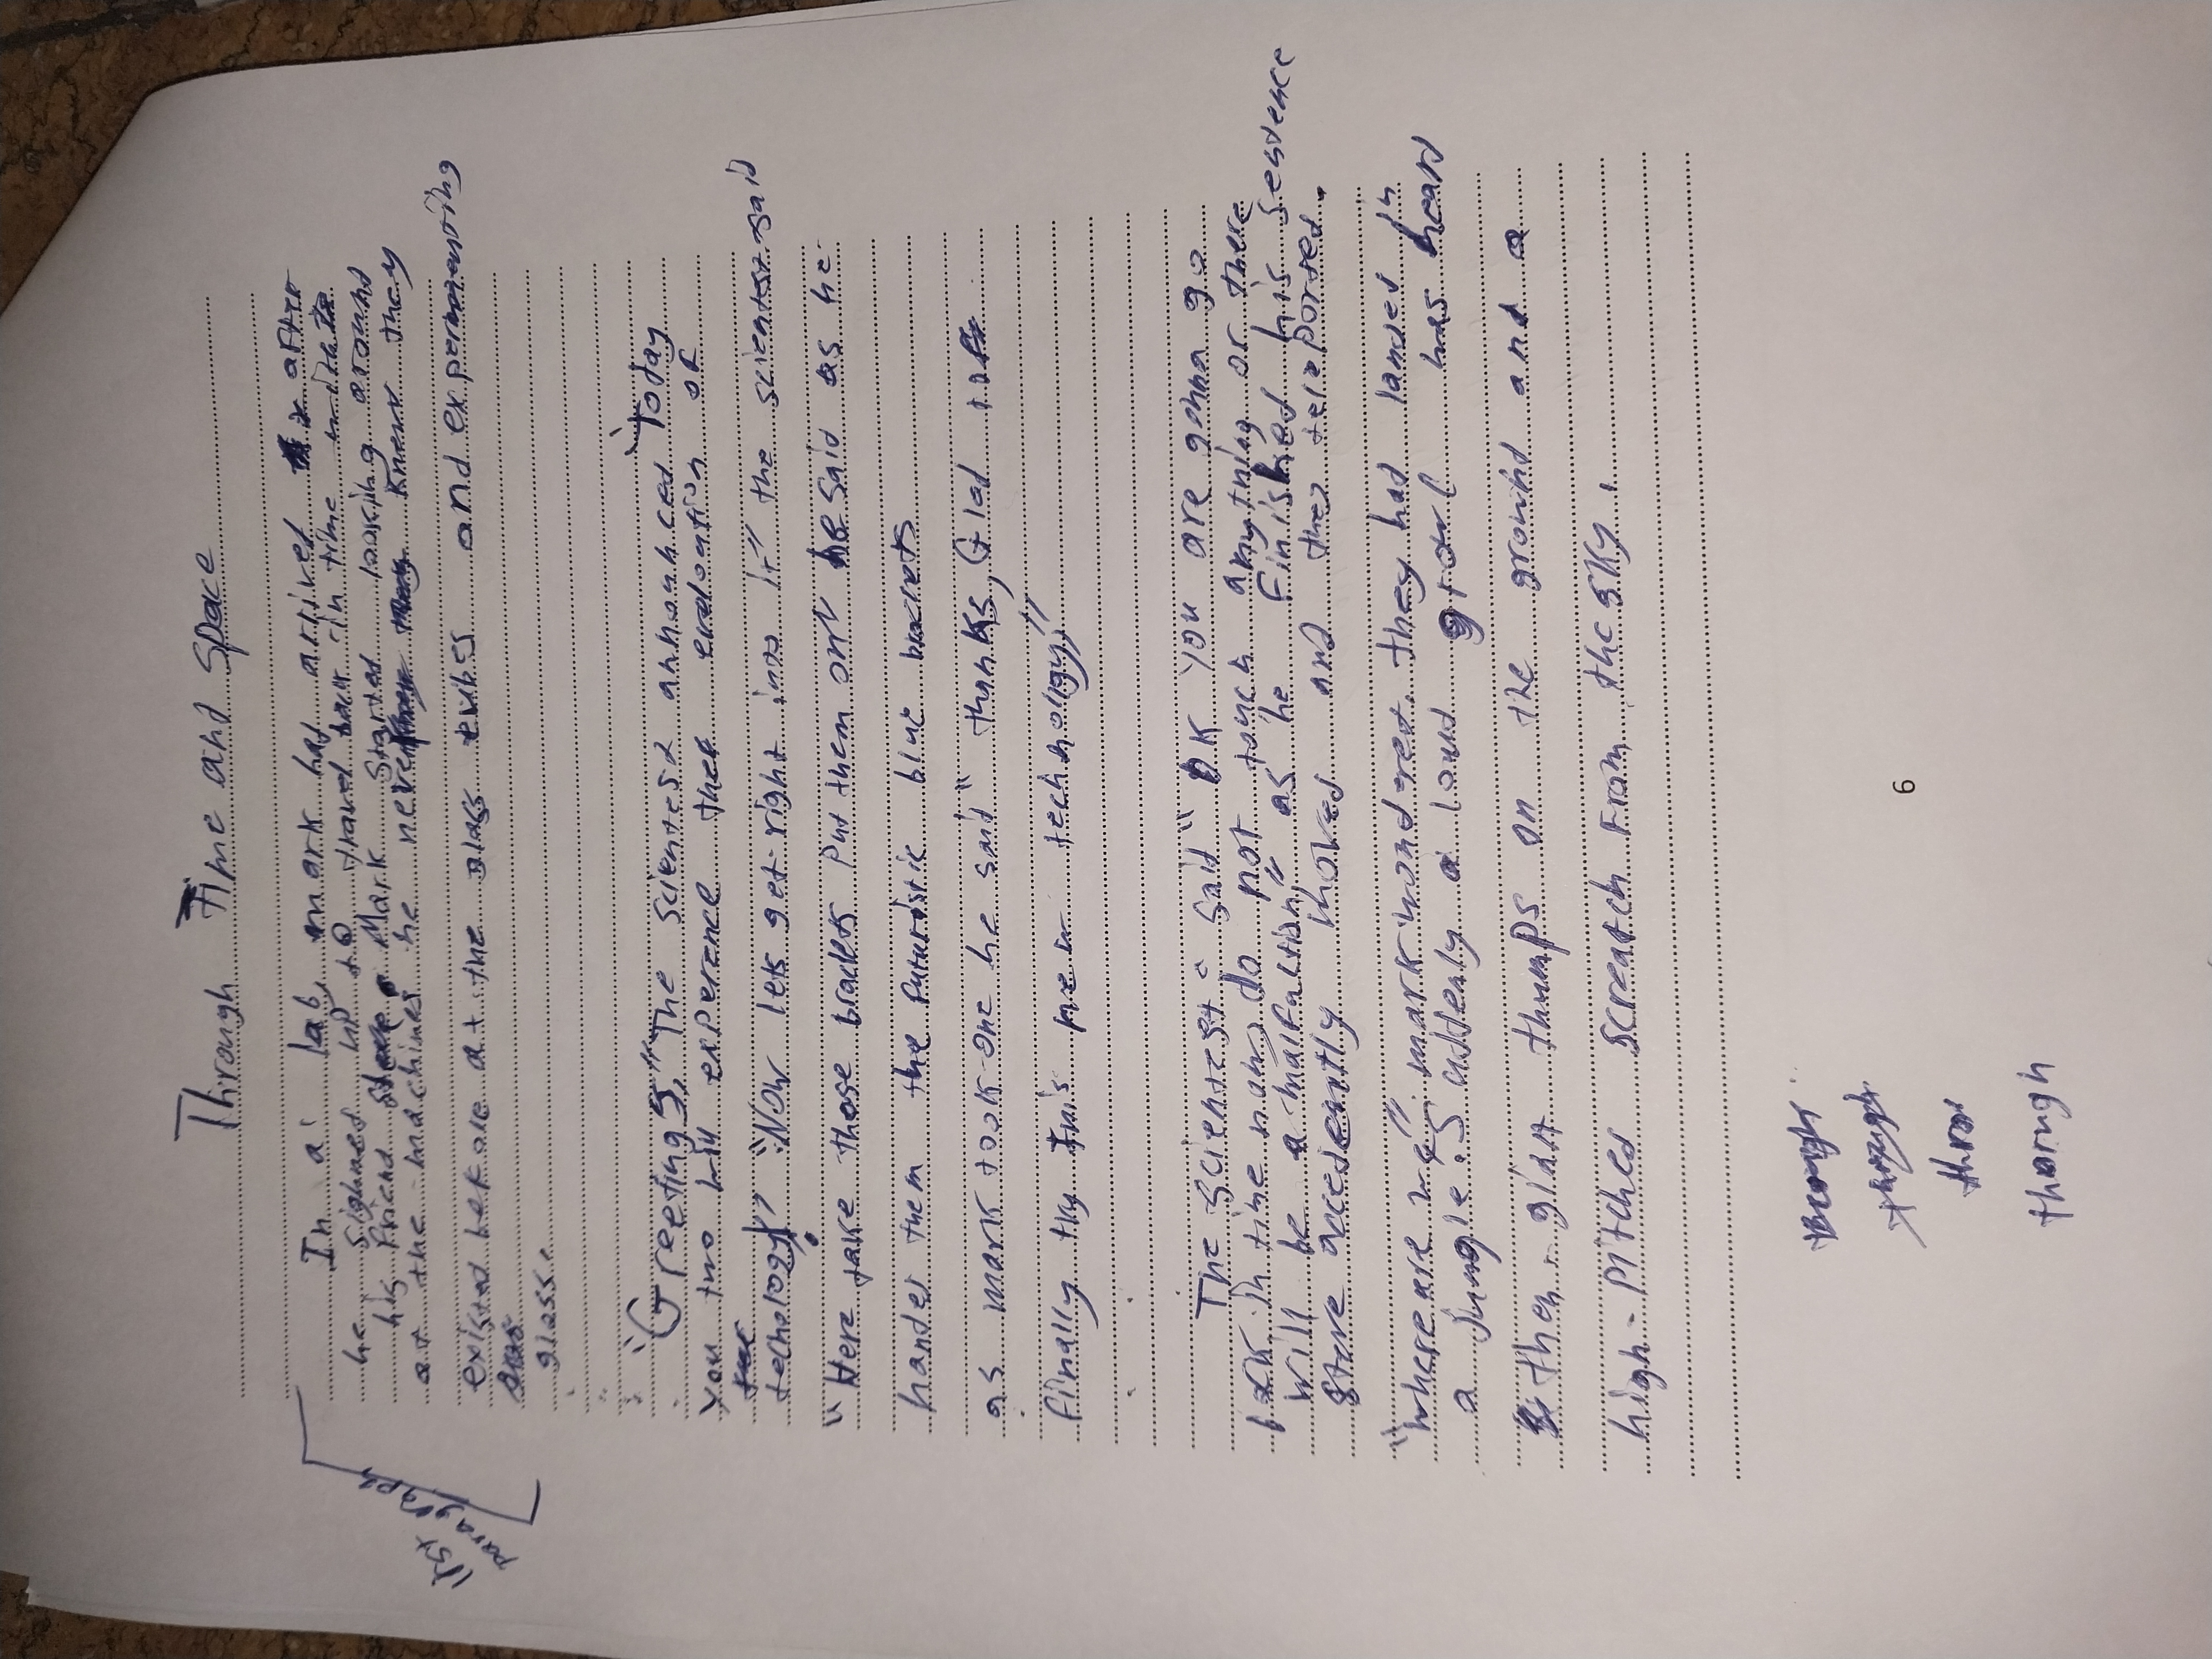 Thirough Time and Space
In a lab mark had arrived after
he sighned up to travel back in time
his Friend Steve Mark Started looking around
at the machines he never knew they
existed before at the glass tubes and experimenting
glasse
"Greetings," The scientest announced "Today
you two will experence the evaloution of
techology" "Now lets get right into it" the scientest said
"Here take those braclets Put them on" he said as he
handed them the futuristic blue braclets
as mark took one he said "thanks, Glad to
finally try this new technology"
The scientest said "OK you are gonna go
back in time now do not touch anything or there
will be a malfunction" as he Finished his sentence
Steve accedently moved and they teleported.
"where are we" mark wondered. they had landed in
a Jungle. Suddenly a loud growl was heard
then giant thumps on the ground and a
high-pitched screatch from the sky.
6
through
throu
thorugh